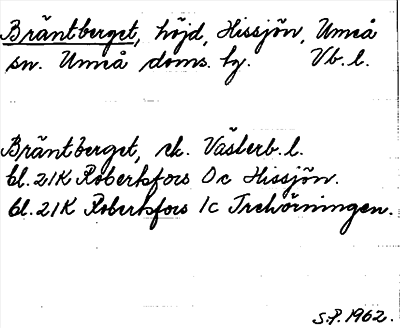 Bräntberget, höjd, Hissjön, Umeå
sn. Umeå doms. hg. Vb. l.
Bräntberget, rk. Västerb. l.
bl. 21K Robertsfors 0c Hissjön.
bl. 21K Robertsfors 1c Trehörningen.
S.P. 1962.